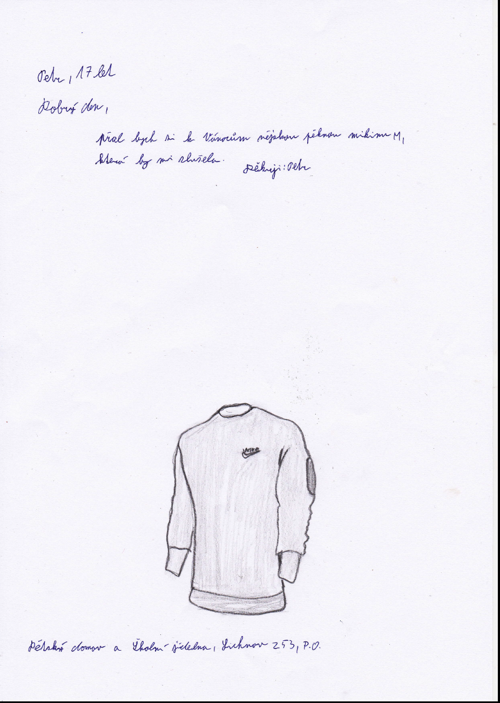 Petr, 17 let
Dobrý den,
přál bych si k Vánocům nějakou pěknou mikinu M,
která by mi slušela.
Děkuji: Petr
Dětský domov a Školní jídelna, Lichnov 253, P.O.